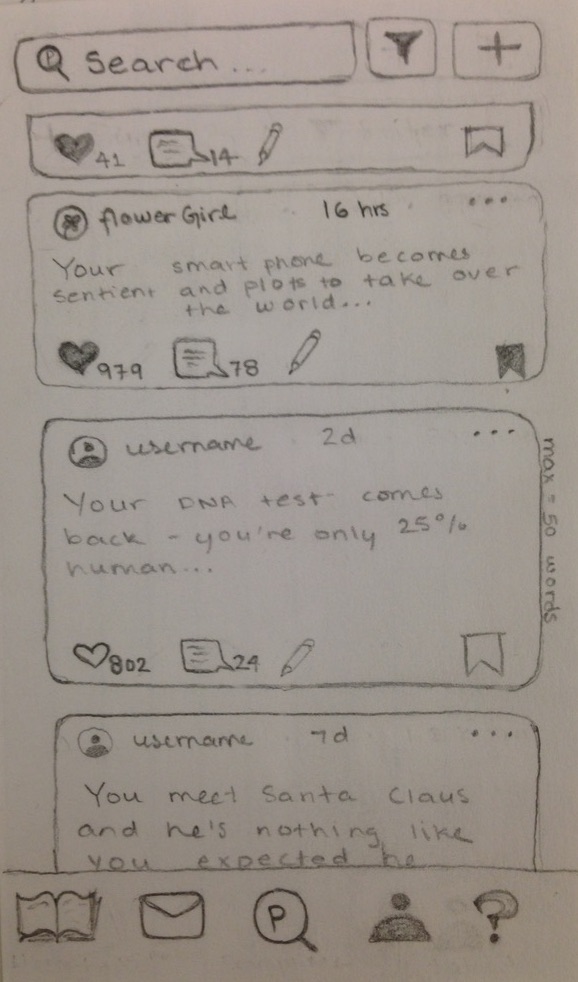 P Search...
41 14
flowerGirl · 16 hrs ...
Your smart phone becomes
sentient and plots to take over
the world...
979 78
username · 2d ...
Your DNA test comes
back - you're only 25%
human...
802 24
max = 50 words
username · 7d ...
You meet Santa Claus
and he's nothing like
you expected he
P ?